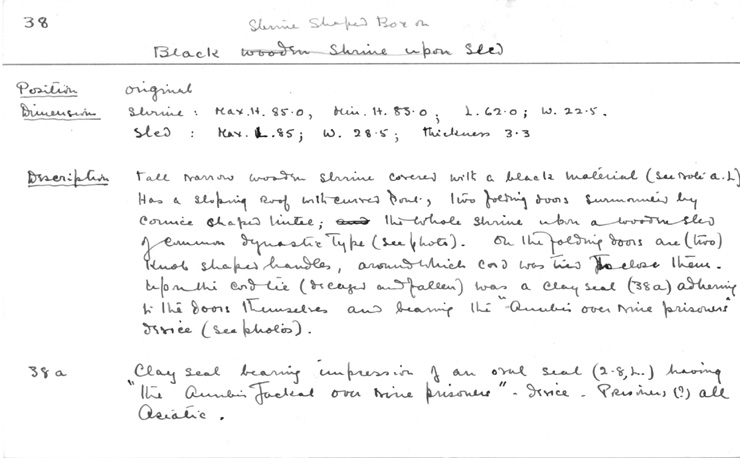 38
Shrine Shaped Box on
Black wooden Shrine upon Sled
Position original
Dimension Shrine : Max. H. 85.0, Min. H. 83.0; L. 62.0; W. 22.5.
Sled : Max. L. 85; W. 28.5; thickness 3.3
Description Tall narrow wooden shrine covered with a black material (see note a.L)
Has a sloping roof with curved front, two folding doors surmounted by
cornice shaped lintel; and the whole shrine upon a wooden sled
of common dynastic type (see photo). On the folding doors are (two)
knob shaped handles, around which cord was tied to close them.
Upon the cord tie (decayed and fallen) was a clay seal (38a) adhering
to the doors themselves and bearing the "Anubis over nine prisoners"
device (see photos).
38a Clay seal bearing impression of an oval seal (2.8, L.) having
"the Anubis Jackal over nine prisoners" - device - Prisoners (?) all
Asiatic.